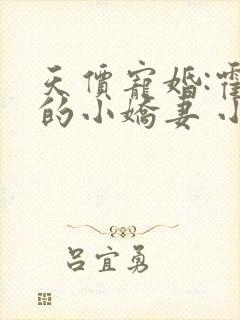 天價寵婚:霍
的小嬌妻 小
吕宜勇